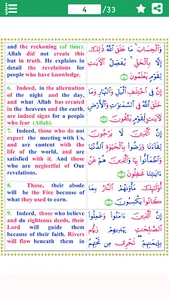 4 /33
and the reckoning (of time).
Allah did not create this
but in truth. He explains in
detail the revelations for
people who have knowledge.
6. Indeed, in the alternation
of the night and the day,
and what Allah has created
in the heavens and the earth,
are indeed signs for a people
who fear (Allah).
7. Indeed, those who do not
expect the meeting with Us,
and are content with the
life of the world, and are
satisfied with it. And those
who are neglectful of Our
revelations.
8. Those, their abode
will be the Fire because of
what they used to earn.
9. Indeed, those who believe
and do righteous deeds, their
Lord will guide them
because of their faith. Rivers
will flow beneath them in
وَالْحِسَابَ مَا خَلَقَ اللَّهُ ذَٰلِكَ
إِلَّا بِالْحَقِّ يُفَصِّلُ الْآيَاتِ
لِقَوْمٍ يَعْلَمُونَ
إِنَّ فِي اخْتِلَافِ اللَّيْلِ وَالنَّهَارِ وَمَا
خَلَقَ اللَّهُ فِي السَّمَاوَاتِ وَالْأَرْضِ
لَآيَاتٍ لِقَوْمٍ يَتَّقُونَ
إِنَّ الَّذِينَ لَا يَرْجُونَ
لِقَاءَنَا وَرَضُوا بِالْحَيَاةِ الدُّنْيَا
وَاطْمَأَنُّوا بِهَا وَالَّذِينَ هُمْ عَنْ
آيَاتِنَا غَافِلُونَ
أُولَٰئِكَ مَأْوَاهُمُ النَّارُ بِمَا
كَانُوا يَكْسِبُونَ
إِنَّ الَّذِينَ آمَنُوا وَعَمِلُوا
الصَّالِحَاتِ يَهْدِيهِمْ رَبُّهُمْ
بِإِيمَانِهِمْ تَجْرِي مِنْ تَحْتِهِمُ